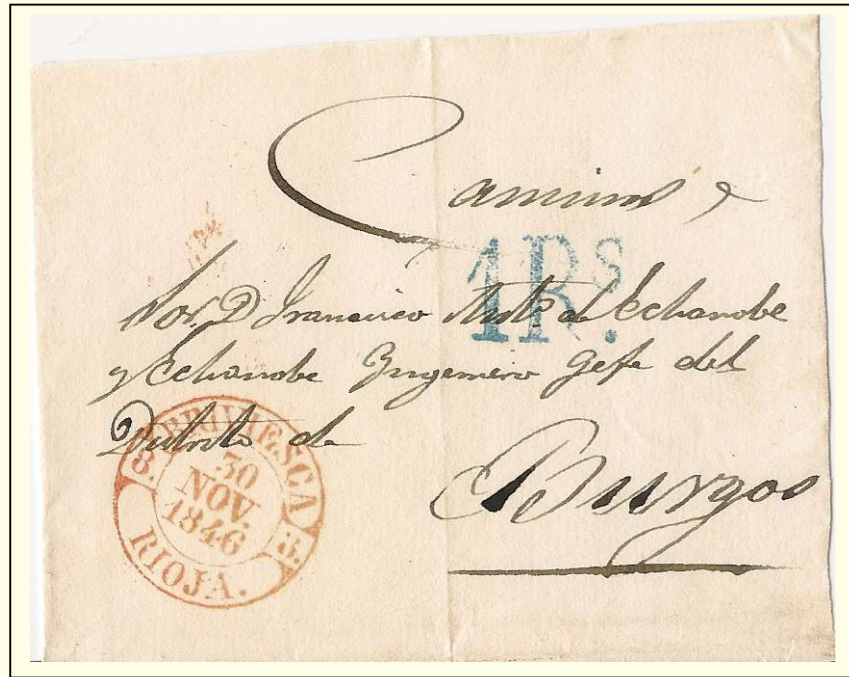 Caminos
1Rs.
Sor. D Francisco de Echanobe
y Echanobe Yngeniero Gefe del
Distrito de
Burgos
BRIVIESCA
8. 8.
30
NOV.
1846
RIOJA.